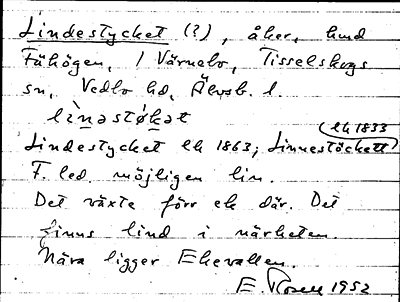 Lindestycket (?), åker, hmd
Fåhögen, / Värnebo, Tisselskogs
sn, Vedbo hd, Älvsb. l.
lìnəstø̀kət
lh 1833
Lindestycket lh 1863; Linnestöckett
F. led. möjligen lin.
Det växte förr ek där. Det
finns lind i närheten.
Nära ligger Ekevallen.
E. 1952